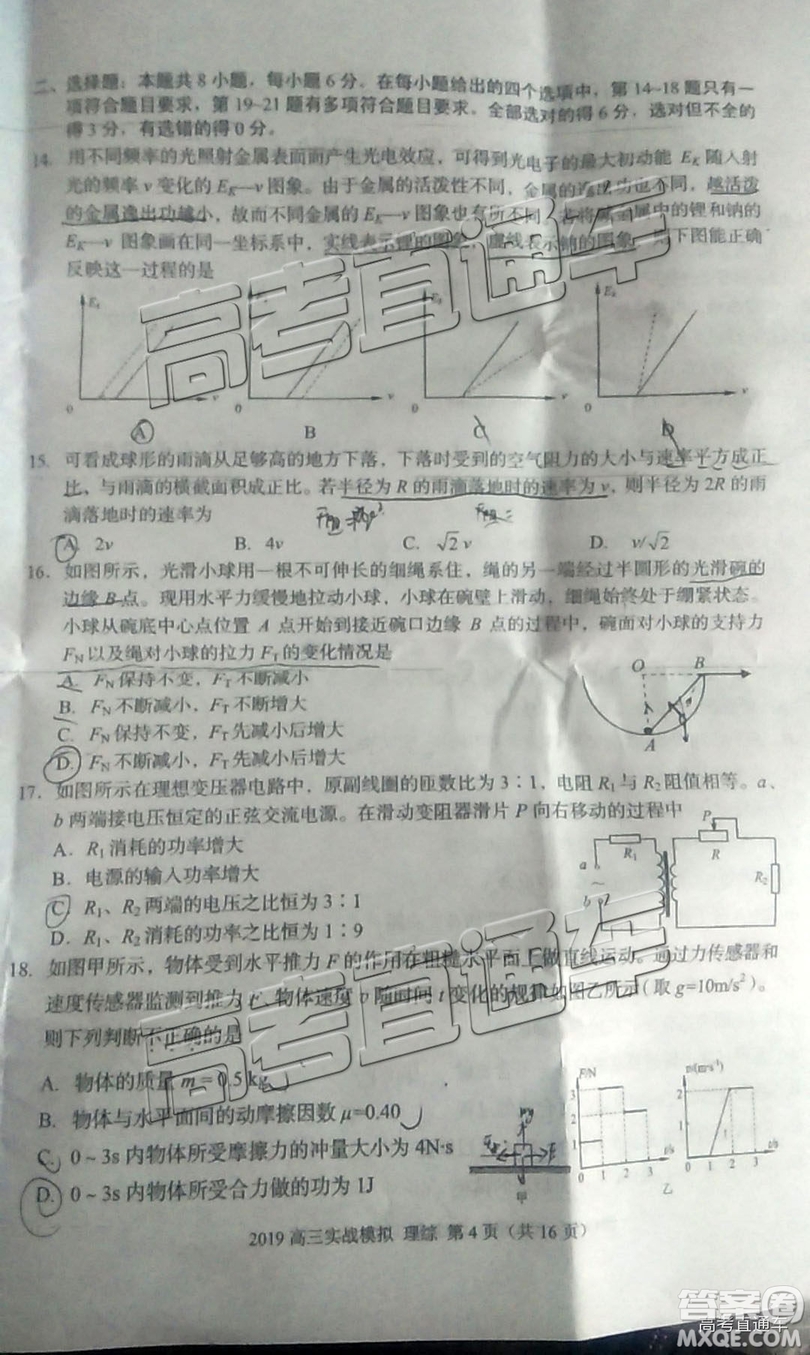 二、选择题：本题共8小题，每小题6分。在每小题给出的四个选项中，第14~18题只有一
项符合题目要求，第19~21题有多项符合题目要求。全部选对的得6分，选对但不全的
得3分，有选错的得0分。
14. 用不同频率的光照射金属表面而产生光电效应，可得到光电子的最大初动能 EK 随入射
光的频率 ν 变化的 EK—ν 图象。由于金属的活泼性不同，金属的逸出功也不同，越活泼
的金属逸出功越小，故而不同金属的 EK—ν 图象也有所不同 金属中的锂和钠的
EK—ν 图象画在同一坐标系中，实线表示锂的图象，虚线表示钠的图象 下图能正确
反映这一过程的是
Ek Ek Ek
0 ν 0 ν 0 ν 0 ν
A B C D
15. 可看成球形的雨滴从足够高的地方下落，下落时受到的空气阻力的大小与速率平方成正
比、与雨滴的横截面积成正比。若半径为 R 的雨滴落地时的速率为 v，则半径为 2R 的雨
滴落地时的速率为
A. 2v B. 4v C. √2 v D. v/√2
16. 如图所示，光滑小球用一根不可伸长的细绳系住，绳的另一端经过半圆形的光滑碗的
边缘 B 点。现用水平力缓慢地拉动小球，小球在碗壁上滑动，细绳始终处于绷紧状态。
小球从碗底中心点位置 A 点开始到接近碗口边缘 B 点的过程中，碗面对小球的支持力
FN 以及绳对小球的拉力 FT 的变化情况是
A. FN 保持不变，FT 不断减小
B. FN 不断减小，FT 不断增大
C. FN 保持不变，FT 先减小后增大
D. FN 不断减小，FT 先减小后增大
O B
A
17. 如图所示在理想变压器电路中，原副线圈的匝数比为 3∶1，电阻 R1 与 R2 阻值相等。a、
b 两端接电压恒定的正弦交流电源。在滑动变阻器滑片 P 向右移动的过程中
A. R1 消耗的功率增大
B. 电源的输入功率增大
C. R1、R2 两端的电压之比恒为 3∶1
D. R1、R2 消耗的功率之比恒为 1∶9
P
R1 R
a R2
~
b
18. 如图甲所示，物体受到水平推力 F 的作用在粗糙水平面上做直线运动。通过力传感器和
速度传感器监测到推力 F、物体速度 v 随时间 t 变化的规律如图乙所示（取 g=10m/s²）。
则下列判断不正确的是
A. 物体的质量 m = 0.5 kg
B. 物体与水平面间的动摩擦因数 μ=0.40
C. 0~3s 内物体所受摩擦力的冲量大小为 4N·s
D. 0~3s 内物体所受合力做的功为 1J
F/N v/(m·s⁻¹)
3 2
2
1
0 1 2 3 t/s 0 1 2 3 t/s
甲 乙
2019 高三实战模拟 理综 第 4 页（共 16 页）
高考直通车
高考直通车
答案圈
高考直通车
MXQE.COM